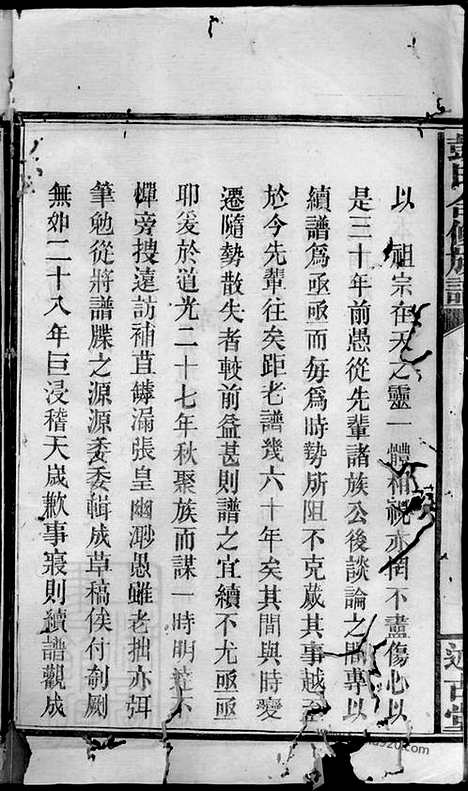 彭氏合修族譜
述古堂
以　祖宗在天之靈一體相視亦罔不盡傷心以
是三十年前愚從先輩諸族公後談論之間專以
續譜爲亟亟而每爲時勢所阻不克蕆其事越至
於今先輩往矣距老譜幾六十年矣其間與時變
遷隨勢散失者較前益甚則譜之宜續不尤亟亟
耶爰於道光二十七年秋聚族而謀一時明達不
憚旁搜遠訪補苴罅漏張皇幽渺愚雖老拙亦弭
筆勉從將譜牒之源源委委輯成草稿俟付剞劂
無如二十八年巨浸稽天歲歉事寢則續譜觀成